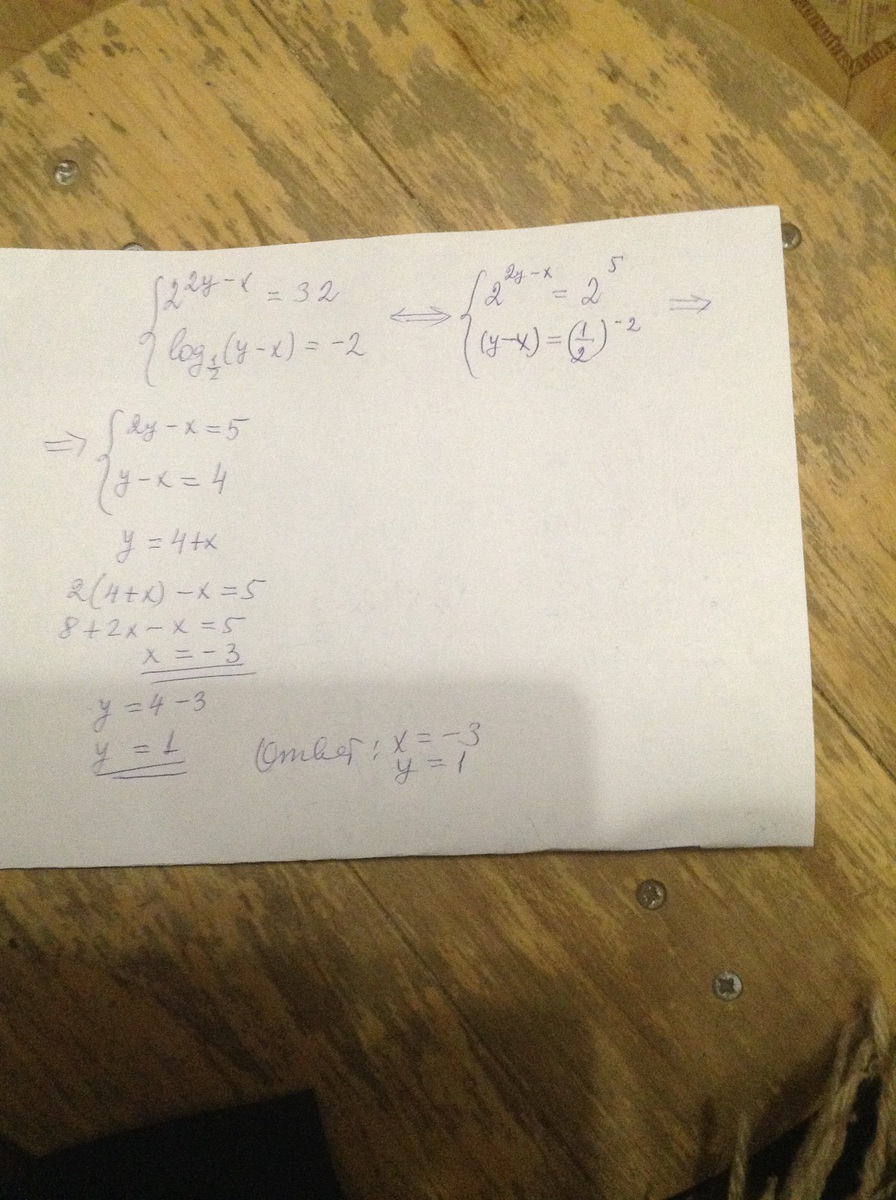 { 2^{2y-x} = 32 ⟺ { 2^{2y-x} = 2^5 ⟹
log_{1/2}(y-x) = -2 (y-x) = (1/2)^{-2}
⟹ { 2y - x = 5
y - x = 4
y = 4+x
2(4+x) - x = 5
8+2x - x = 5
x = -3
y = 4 - 3
y = 1
Ответ: x = -3
y = 1